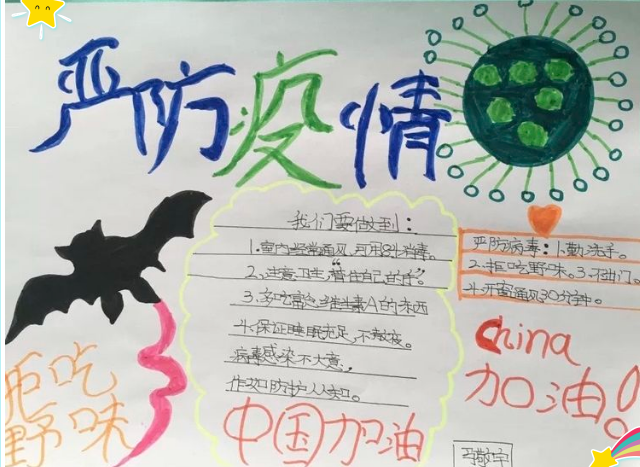 严防疫情
我们要做到：
1.室内经常通风,可用84消毒。
2、注意卫生,管住自己的"手"
3、多吃富含维生素A的东西
4、保证睡眠充足,不熬夜。
病毒感染不大意
作如防护人人知。
严防病毒：1.勤洗手。
2.拒吃野味。3.不出门。
4.开窗通风30分钟。
拒吃
野味
中国加油
China
加油！